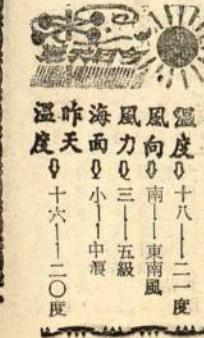 今日天氣
溫度⇨十八——二一度
風向⇨南——東南風
風力⇨三——五級
海面⇨小——中浪
昨天溫度⇨十六——二〇度